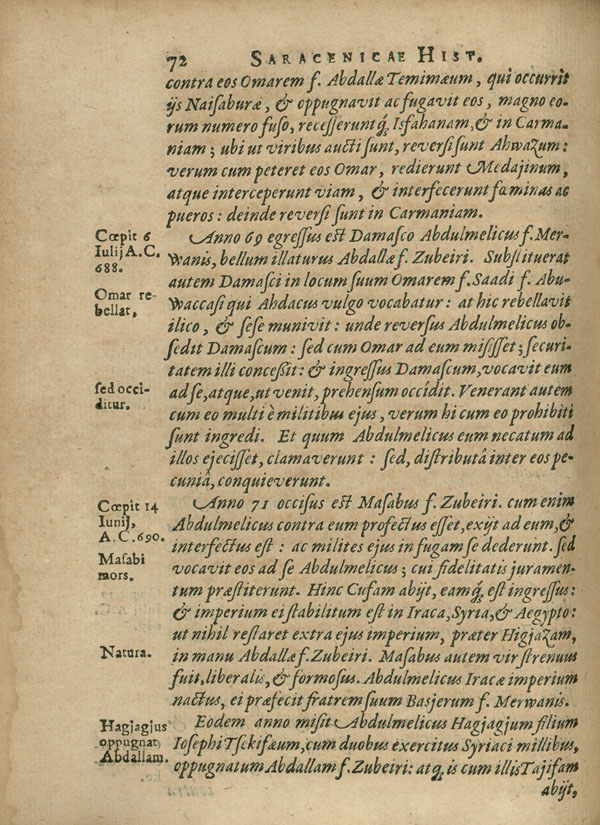 72 SARACENICAE HIST.
contra eos Omarem f. Abdallæ Temimæum, qui occurrit
ijs Naisaburæ, & oppugnavit ac fugavit eos, magno eo-
rum numero fuso, recesseruntq́, Isfahanam, & in Carma-
niam; ubi ut viribus aucti sunt, reversi sunt Ahwazum:
verum cum peteret eos Omar, redierunt Medajinum,
atque interceperunt viam, & interfecerunt fœminas ac
pueros: deinde reversi sunt in Carmaniam.
Cœpit 6
Iulij A.C.
688.
Anno 69 egressus est Damasco Abdulmelicus f. Mer-
wanis, bellum illaturus Abdallæ f. Zubeiri. Substituerat
autem Damasci in locum suum Omarem f. Saadi f. Abu-
Omar re-
bellat,
waccasi qui Ahdacus vulgo vocabatur: at hic rebellavit
ilico, & sese munivit: unde reversus Abdulmelicus ob-
sedit Damascum: sed cum Omar ad eum misisset; securi-
tatem illi concessit: & ingressus Damascum, vocavit eum
sed occi-
ditur.
ad se, atque, ut venit, prehensum occidit. Venerant autem
cum eo multi è militibus ejus, verum hi cum eo prohibiti
sunt ingredi. Et quum Abdulmelicus eum necatum ad
illos ejecisset, clamaverunt: sed, distributâ inter eos pe-
cuniâ, conquieverunt.
Cœpit 14
Iunij,
A.C.690.
Anno 71 occisus est Masabus f. Zubeiri. cum enim
Abdulmelicus contra eum profectus esset, exijt ad eum, &
interfectus est: ac milites ejus in fugam se dederunt. sed
Masabi
mors.
vocavit eos ad se Abdulmelicus; cui fidelitatis juramen-
tum præstiterunt. Hinc Cufam abijt, eamq́, est ingressus:
& imperium ei stabilitum est in Iraca, Syria, & Aegypto:
ut nihil restaret extra ejus imperium, præter Higjazam,
Natura.
in manu Abdallæ f. Zubeiri. Masabus autem vir strenuus
fuit, liberalis, & formosus. Abdulmelicus Iracæ imperium
nactus, ei præfecit fratrem suum Basjerum f. Merwanis.
Hagjagjus
oppugnat
Abdallam.
Eodem anno misit Abdulmelicus Hagjagjum filium
Iosephi Tsekifæum, cum duobus exercitus Syriaci millibus,
oppugnatum Abdallam f. Zubeiri: atq́, is cum illis Tajifam
abijt,